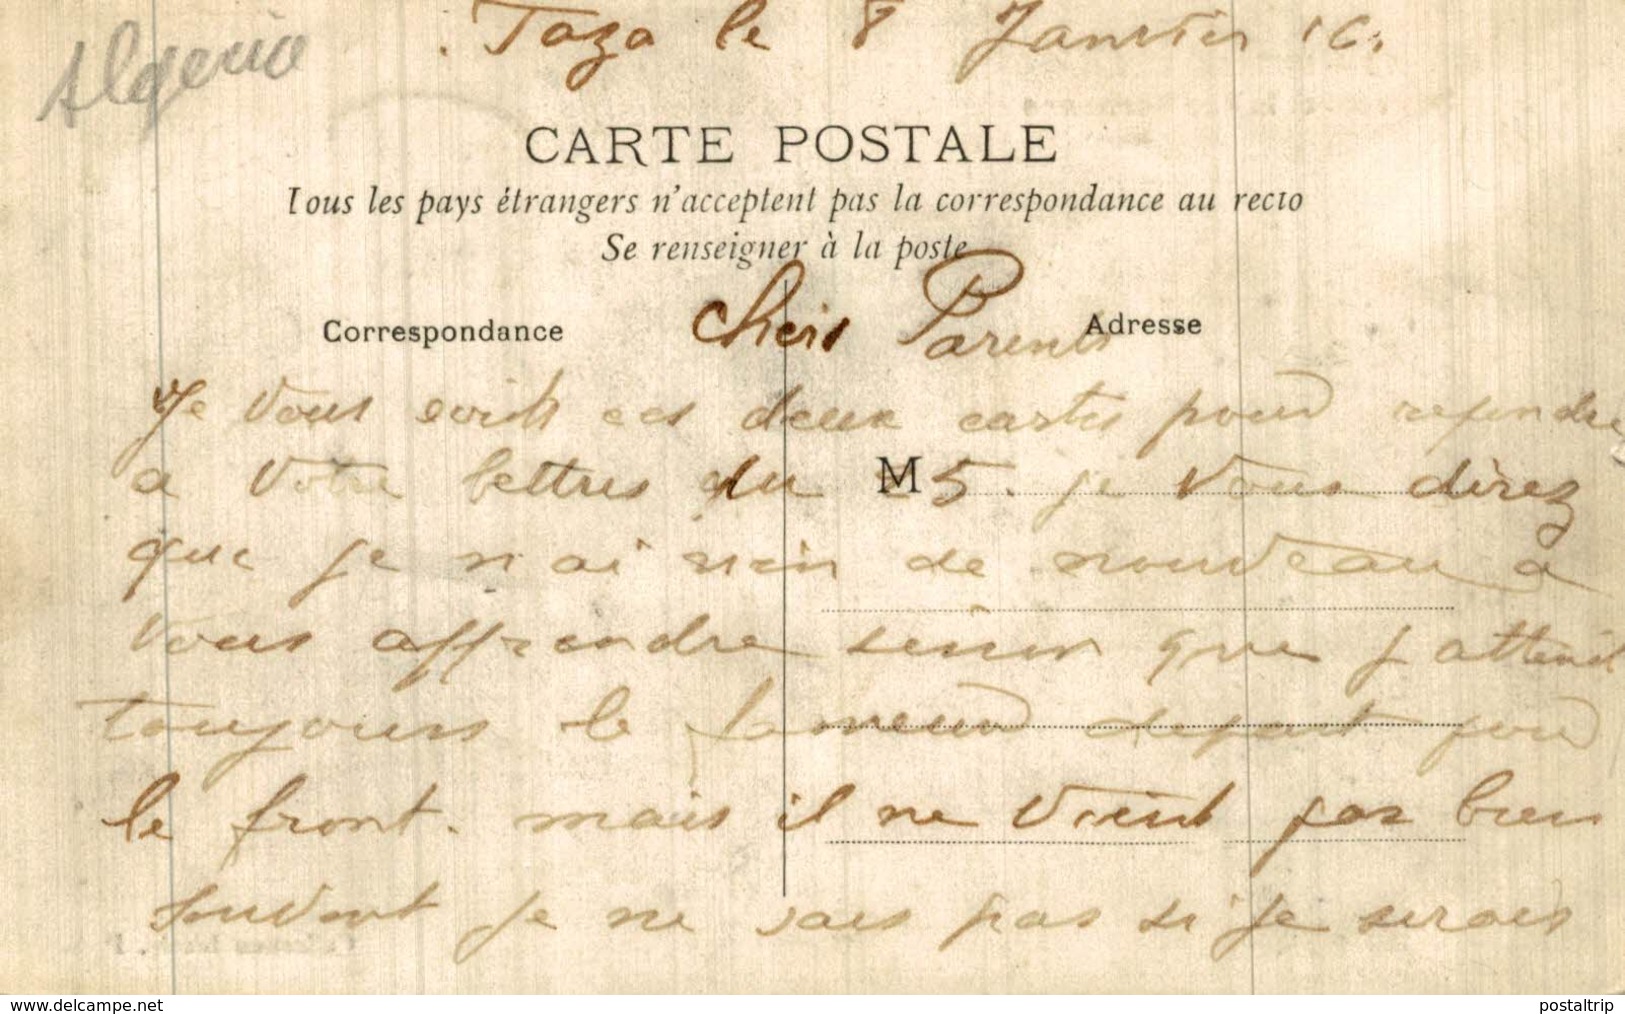 Algeria
Taza le 8 Janvier 16.
CARTE POSTALE
Tous les pays étrangers n'acceptent pas la correspondance au recto
Se renseigner à la poste
Correspondance
Adresse
chers Parents
Je vous ecrits ces deux cartes pour rependre
a votre lettres du 5. je vous direz
M
que je n ai rien de nouveau a
vous apprendre sinon que j attend
toujours le fameux depart pour
le front. mais il ne vient pas bien
souvent je ne sais pas si je serais
www.delcampe.net
postaltrip